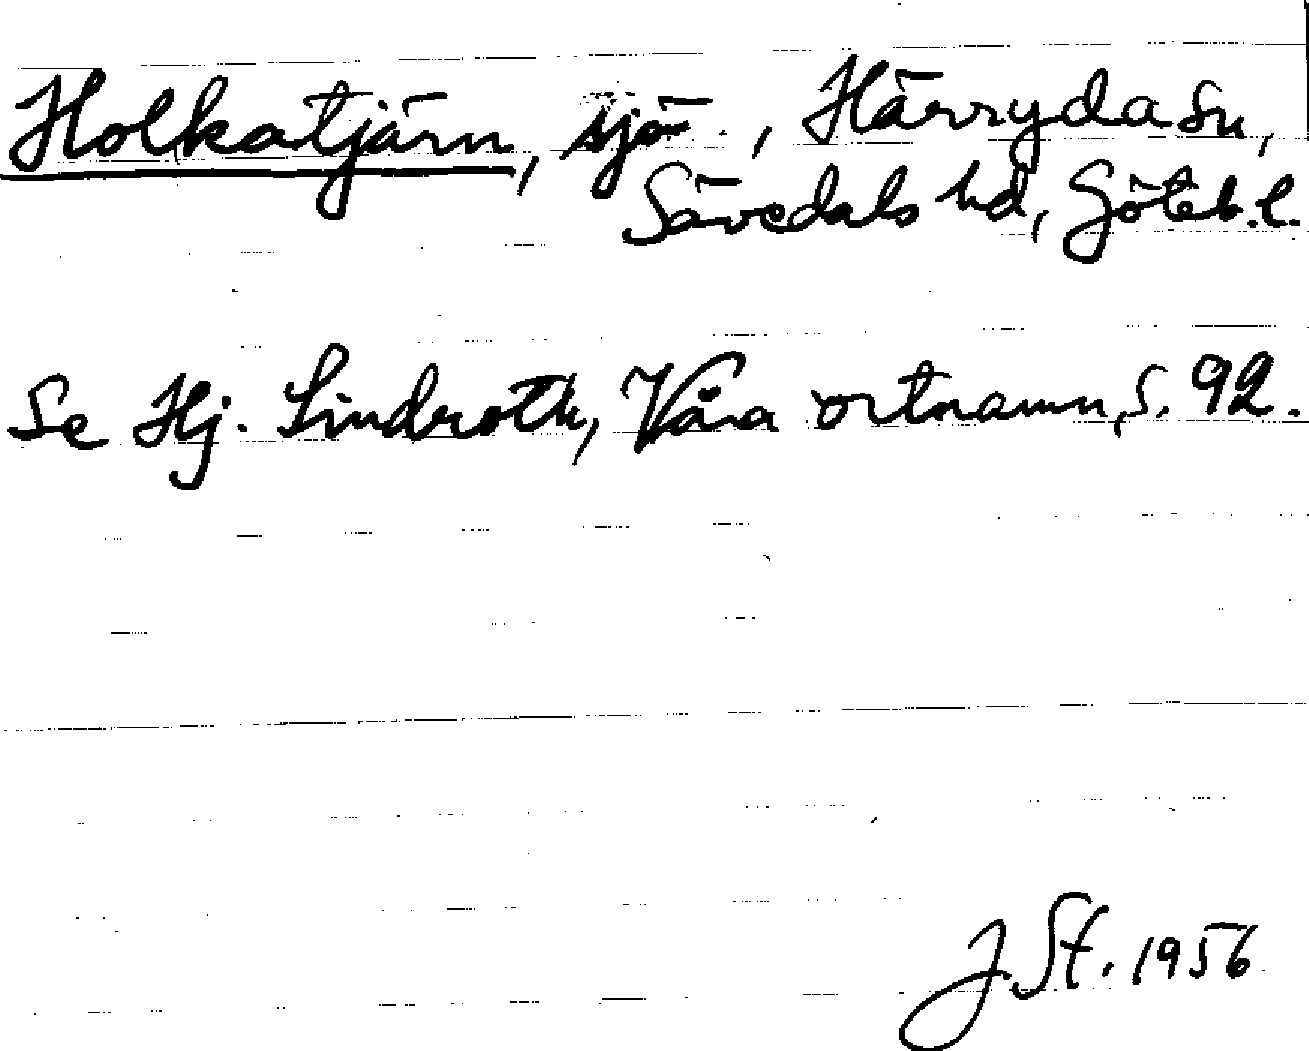 Holkatjärn, sjö, Härryda sn,
Sävedals hd, Göteb.l.
Se Hj. Lindroth, Våra ortnamn, s. 92.
J. St. 1956